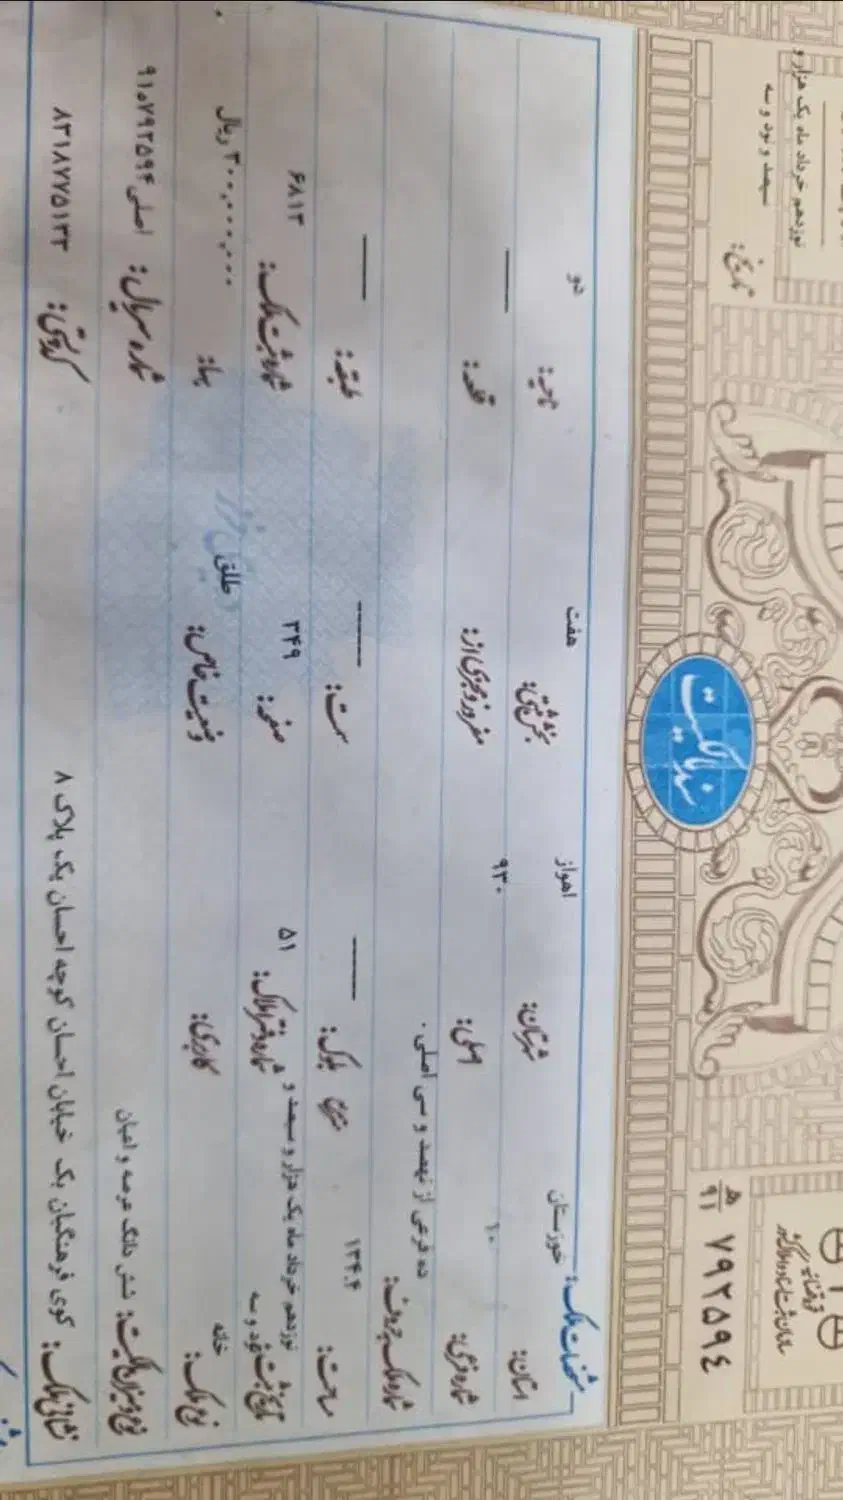 قوه قضائیه
سازمان ثبت اسناد و املاک کشور
۷۹۲۵۹٤ ه‍/۹۱
سند مالکیت
تاریخ: نوزدهم خرداد ماه یک هزار و
سیصد و نود و سه
مشخصات ملک:
استان: خوزستان شهرستان: اهواز بخش ثبتی: هفت ناحیه: دو
شماره فرعی: ۱۰ اصلی: ۹۳۰ مفروز و مجزی از: قطعه: ——
شماره ملک بحروف: ده فرعی از نهصد و سی اصلی .
مساحت: ۱۳۴.۴ متر مربع بلوک: —— سمت: —— طبقه: ——
تاریخ ثبت: نوزدهم خرداد ماه یک هزار و سیصد و نود و سه شماره دفتر املاک: ۵۱ صفحه: ۳۴۹ شماره ثبت ملک: ۶۸۱۳
نوع ملک: خانه کاربری: وضعیت خاص: طلق بهاء: ۳۰۰,۰۰۰,۰۰۰ ریال
نوع و میزان مالکیت: شش دانگ عرصه و اعیان شماره سریال: اصلی ۹۱۰۷۹۲۵۹۴
نشانی ملک: کوی فرهنگیان یک خیابان احسان کوچه احسان یک پلاک ۸ کدپستی: ۸۳۱۸۷۷۵۱۳۳